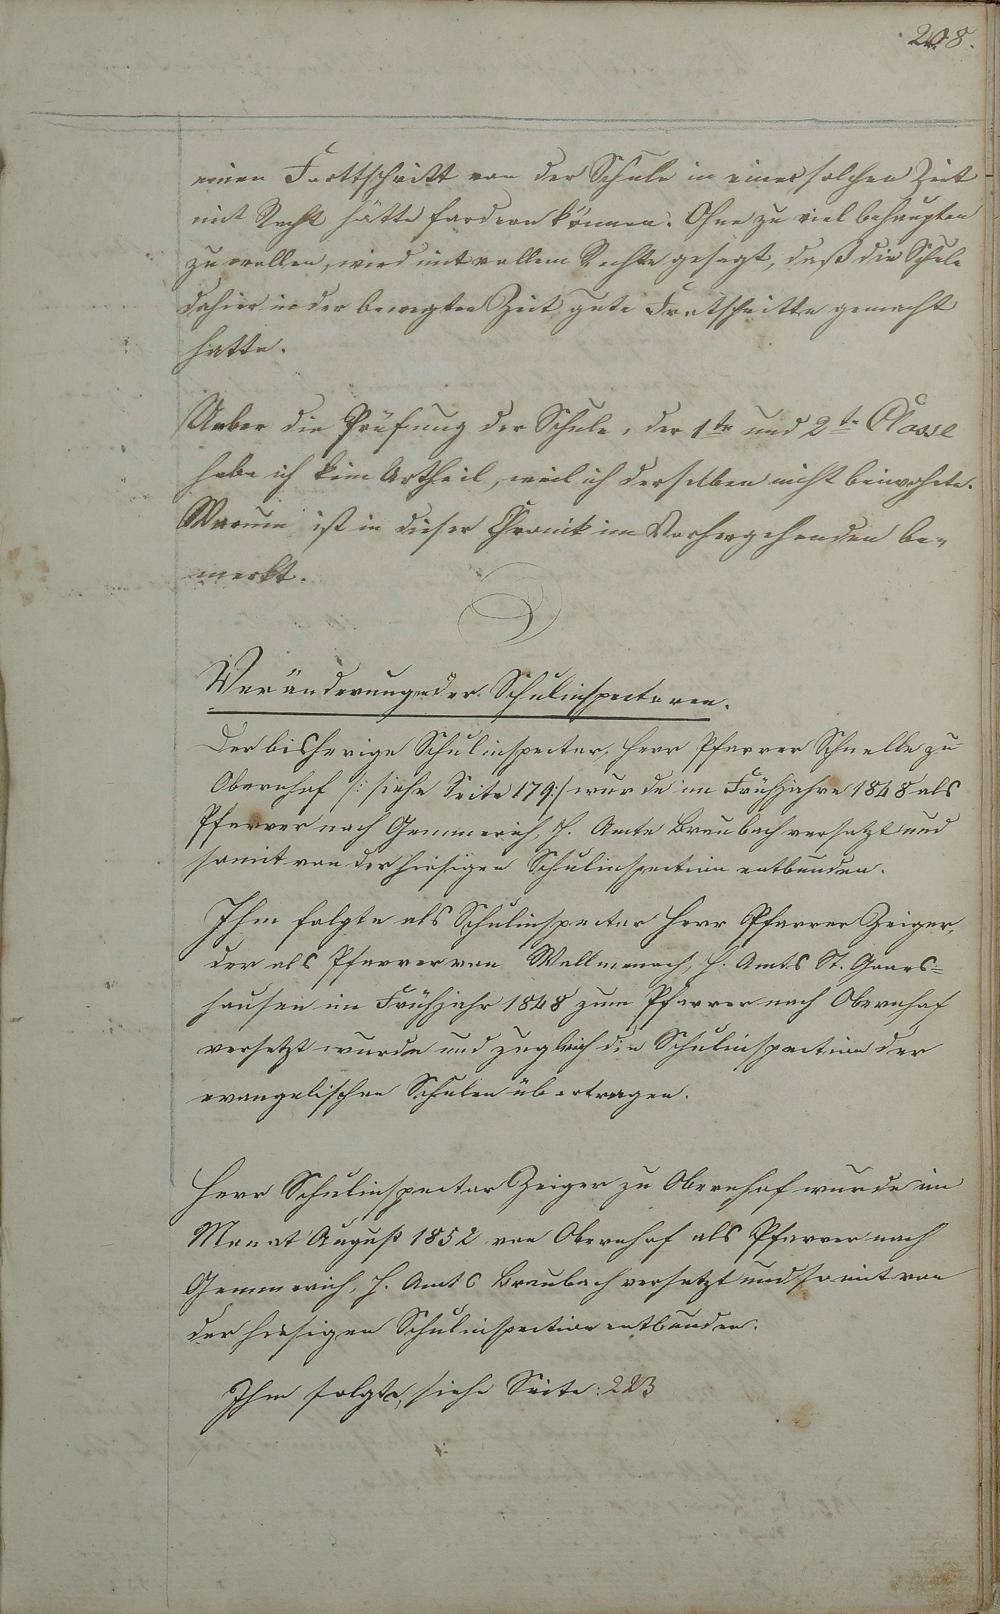 208.
einen Fortschritt von der Schule in einer solchen Zeit
mit Recht hätte fordern können. Ohne zu viel behaupten
zu wollen, wird mit vollem Rechte gesagt, daß die Schule
dahier in der bewegten Zeit gute Fortschritte gemacht
hatte.
Ueber die Prüfung der Schule, der 1te und 2te Classe
habe ich kein Urtheil, weil ich derselben nicht beiwohnte.
Warum ist in dieser Chronik im Vorhergehenden be-
merkt.
Veränderung der Schulinspectoren.
Der bisherige Schulinspector, Herr Pfarrer Schnelle zu
Obernhof /: siehe Seite 179:/ wurde im Frühjahre 1848 als
Pfarrer nach Gemmerich, H. Amts Braubach versetzt und
somit von der hiesigen Schulinspection entbunden.
Ihm folgte als Schulinspector Herr Pfarrer Zeiger,
der als Pfarrer von Wallmenach, H. Amts St. Goars=
hausen im Frühjahr 1848 zum Pfarrer nach Obernhof
versetzt wurde und zugleich die Schulinspection der
evangelischen Schulen übertragen.
Herr Schulinspector Zeiger zu Obernhof wurde im
Monat August 1852 von Obernhof als Pfarrer nach
Gemmerich, H. Amts Braubach versetzt und somit von
der hiesigen Schulinspection entbunden.
Ihm folgte, siehe Seite: 223